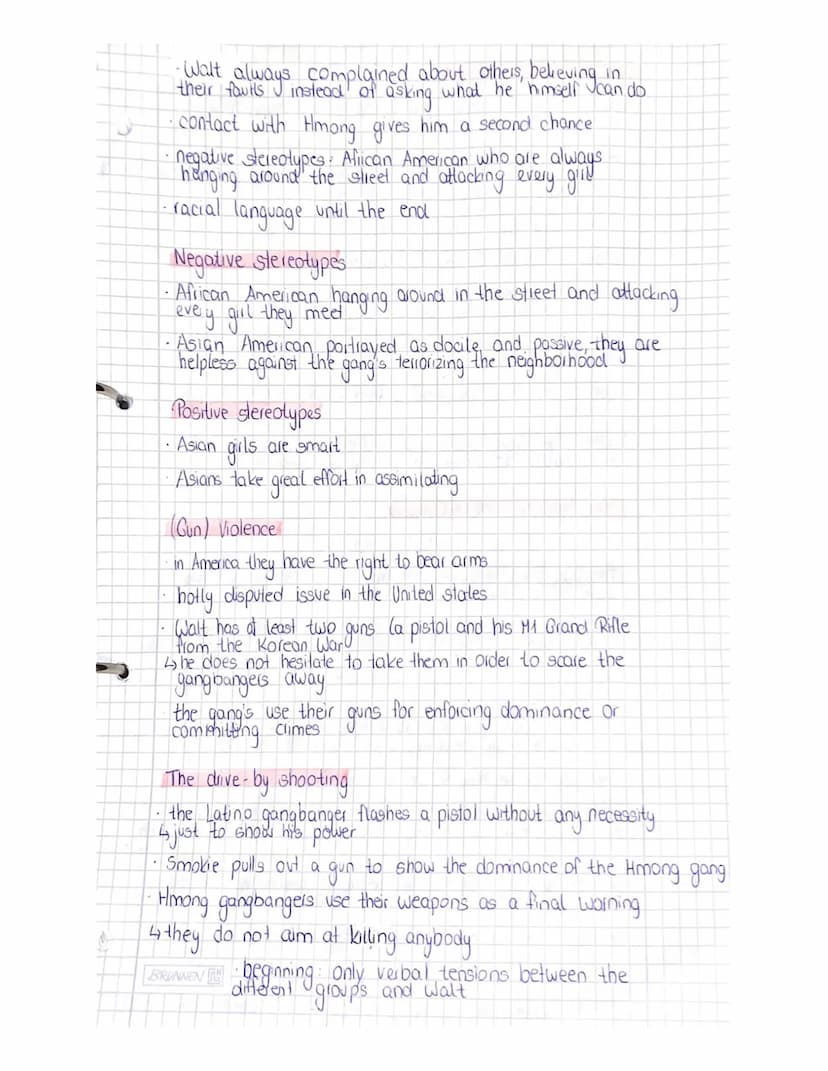 · Walt always complained about others, believing in
their faults instead of asking what he himself can do
· contact with Hmong gives him a second chance
· negative stereotypes: African American who are always
hanging around the street and attacking every girl
· racial language until the end
Negative stereotypes
· African American hanging around in the street and attacking
every girl they meet
· Asian American portrayed as docile and passive, they are
helpless against the gang's terrorizing the neighborhood
Positive stereotypes
· Asian girls are smart
· Asians take great effort in assimilating
(Gun) Violence
· in America they have the right to bear arms
· hotly disputed issue in the United States
· Walt has at least two guns (a pistol and his M1 Grand Rifle
from the Korean War
↳ he does not hesitate to take them in order to scare the
gangbangers away
· the gang's use their guns for enforcing dominance or
committing crimes
The drive-by shooting
· the Latino gangbanger flashes a pistol without any necessity
↳ just to show his power
· Smokie pulls out a gun to show the dominance of the Hmong gang
· Hmong gangbangers use their weapons as a final warning
↳ they do not aim at killing anybody
BRUNNEN · beginning: only verbal tensions between the
different groups and Walt